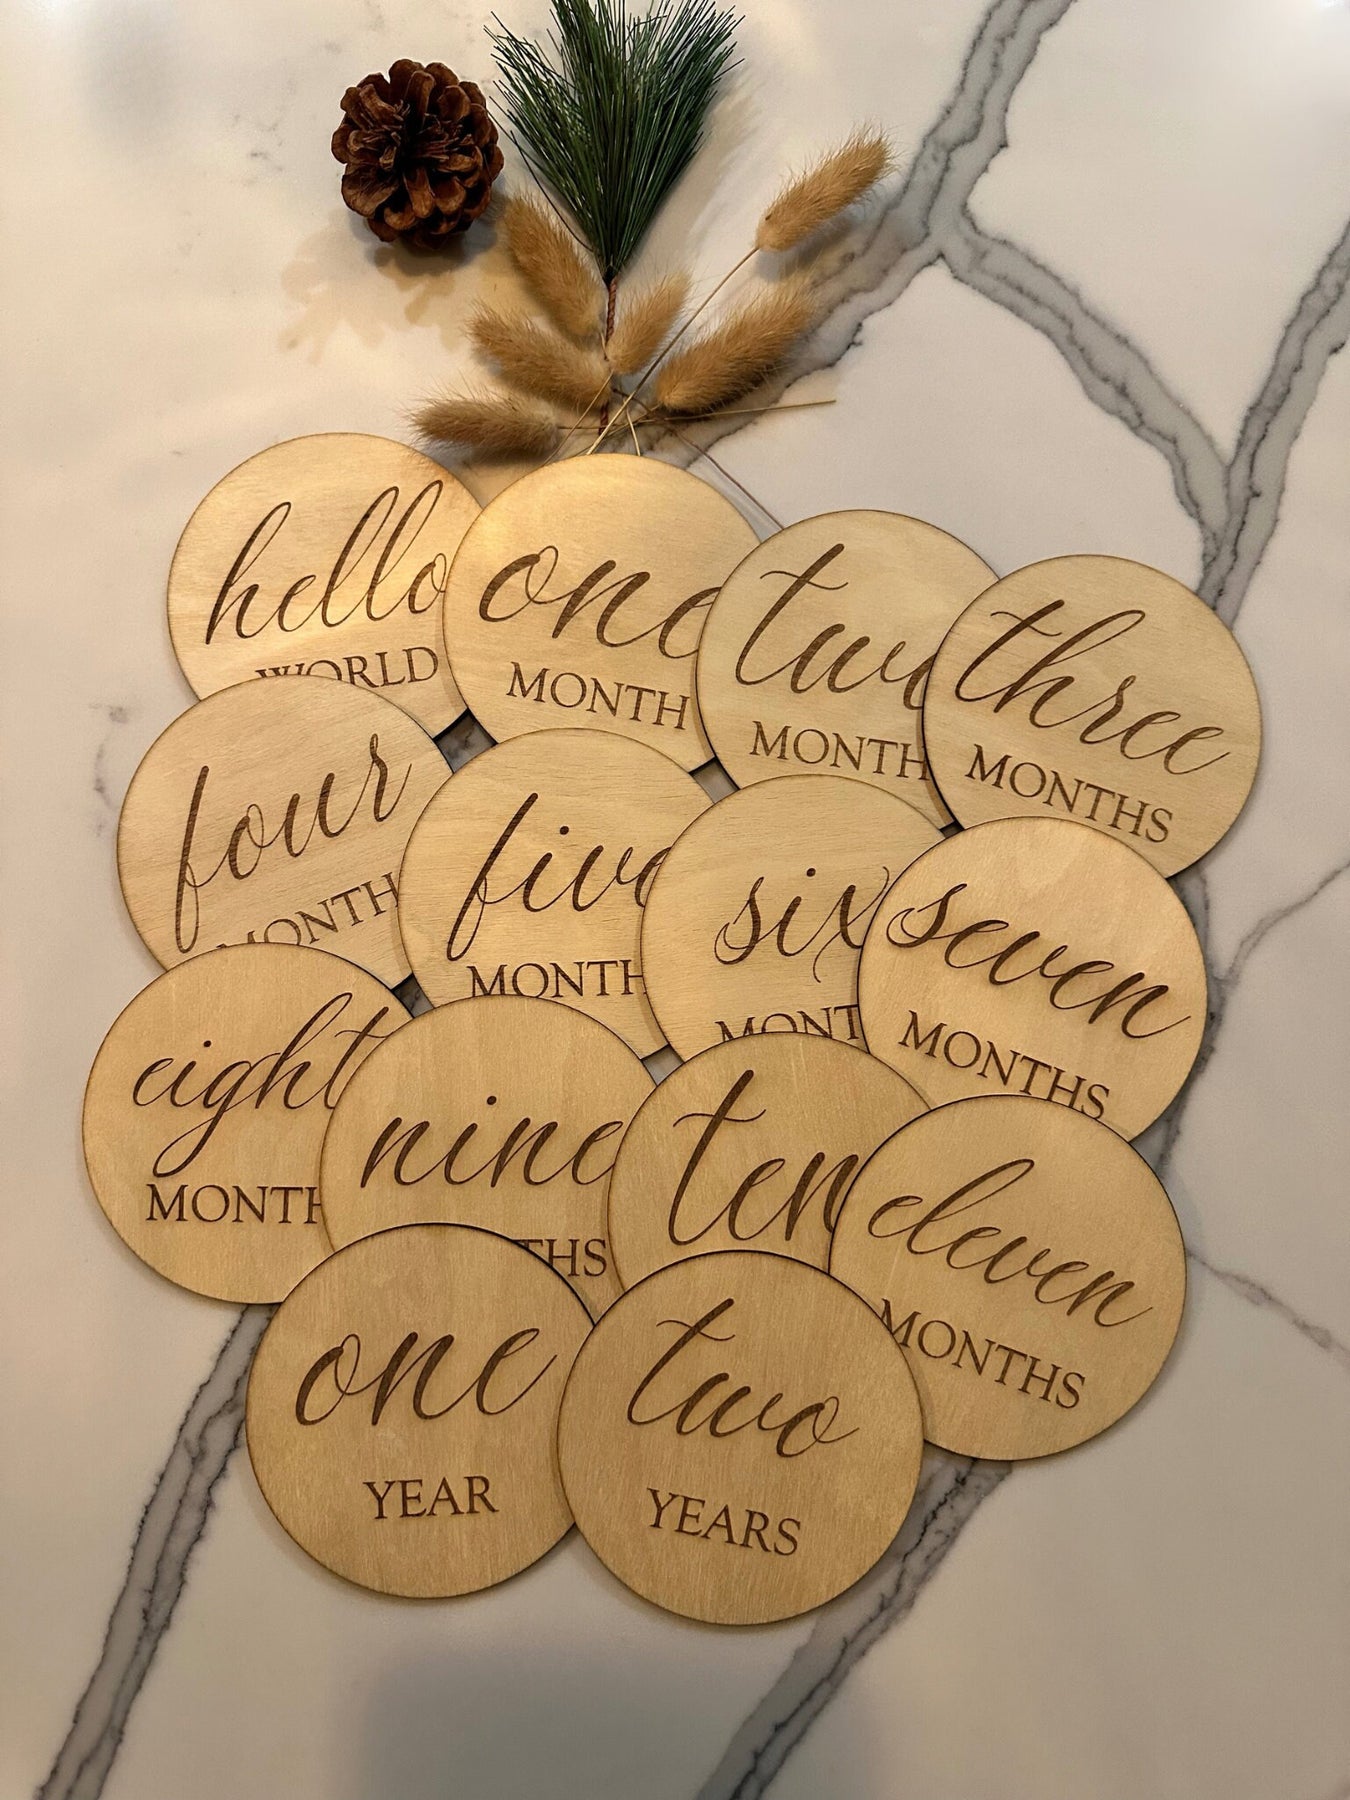 hello
WORLD
one
MONTH
two
MONTH
three
MONTHS
four
MONTH
five
MONTH
six
MONT
seven
MONTHS
eight
MONTH
nine
THS
ten
eleven
MONTHS
one
YEAR
two
YEARS